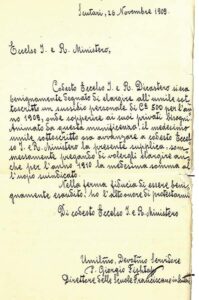 Scutari, 26, Novembre 1909.
Eccelso I. e R. Ministero,
Codesto Eccelso I. e R. Dicastero si era
benignamente degnato di elargire all'umile sot-
toscritto un sussidio personale di C& 500 per l'an-
no 1909, onde sopperire ai suoi privati bisogni.
Animato da questa munificenza, il medesimo
umile sottoscritto osa avanzare a codesto Eccel-
so I. e R. Ministero la presente supplica, som-
messamente pregando di volergli elargire an-
che per l'anno 1910 la medesima somma al-
l'uopo suindicato.
Nella ferma fiducia di essere beni-
gnamente esaudito, ho l'alto onore di protestarmi
Di codesto Eccelso I. e R. Ministero
Umilmo, Devotmo Servitore
P. Giorgio Fishta
Direttore delle Scuole Francescane in Scutari